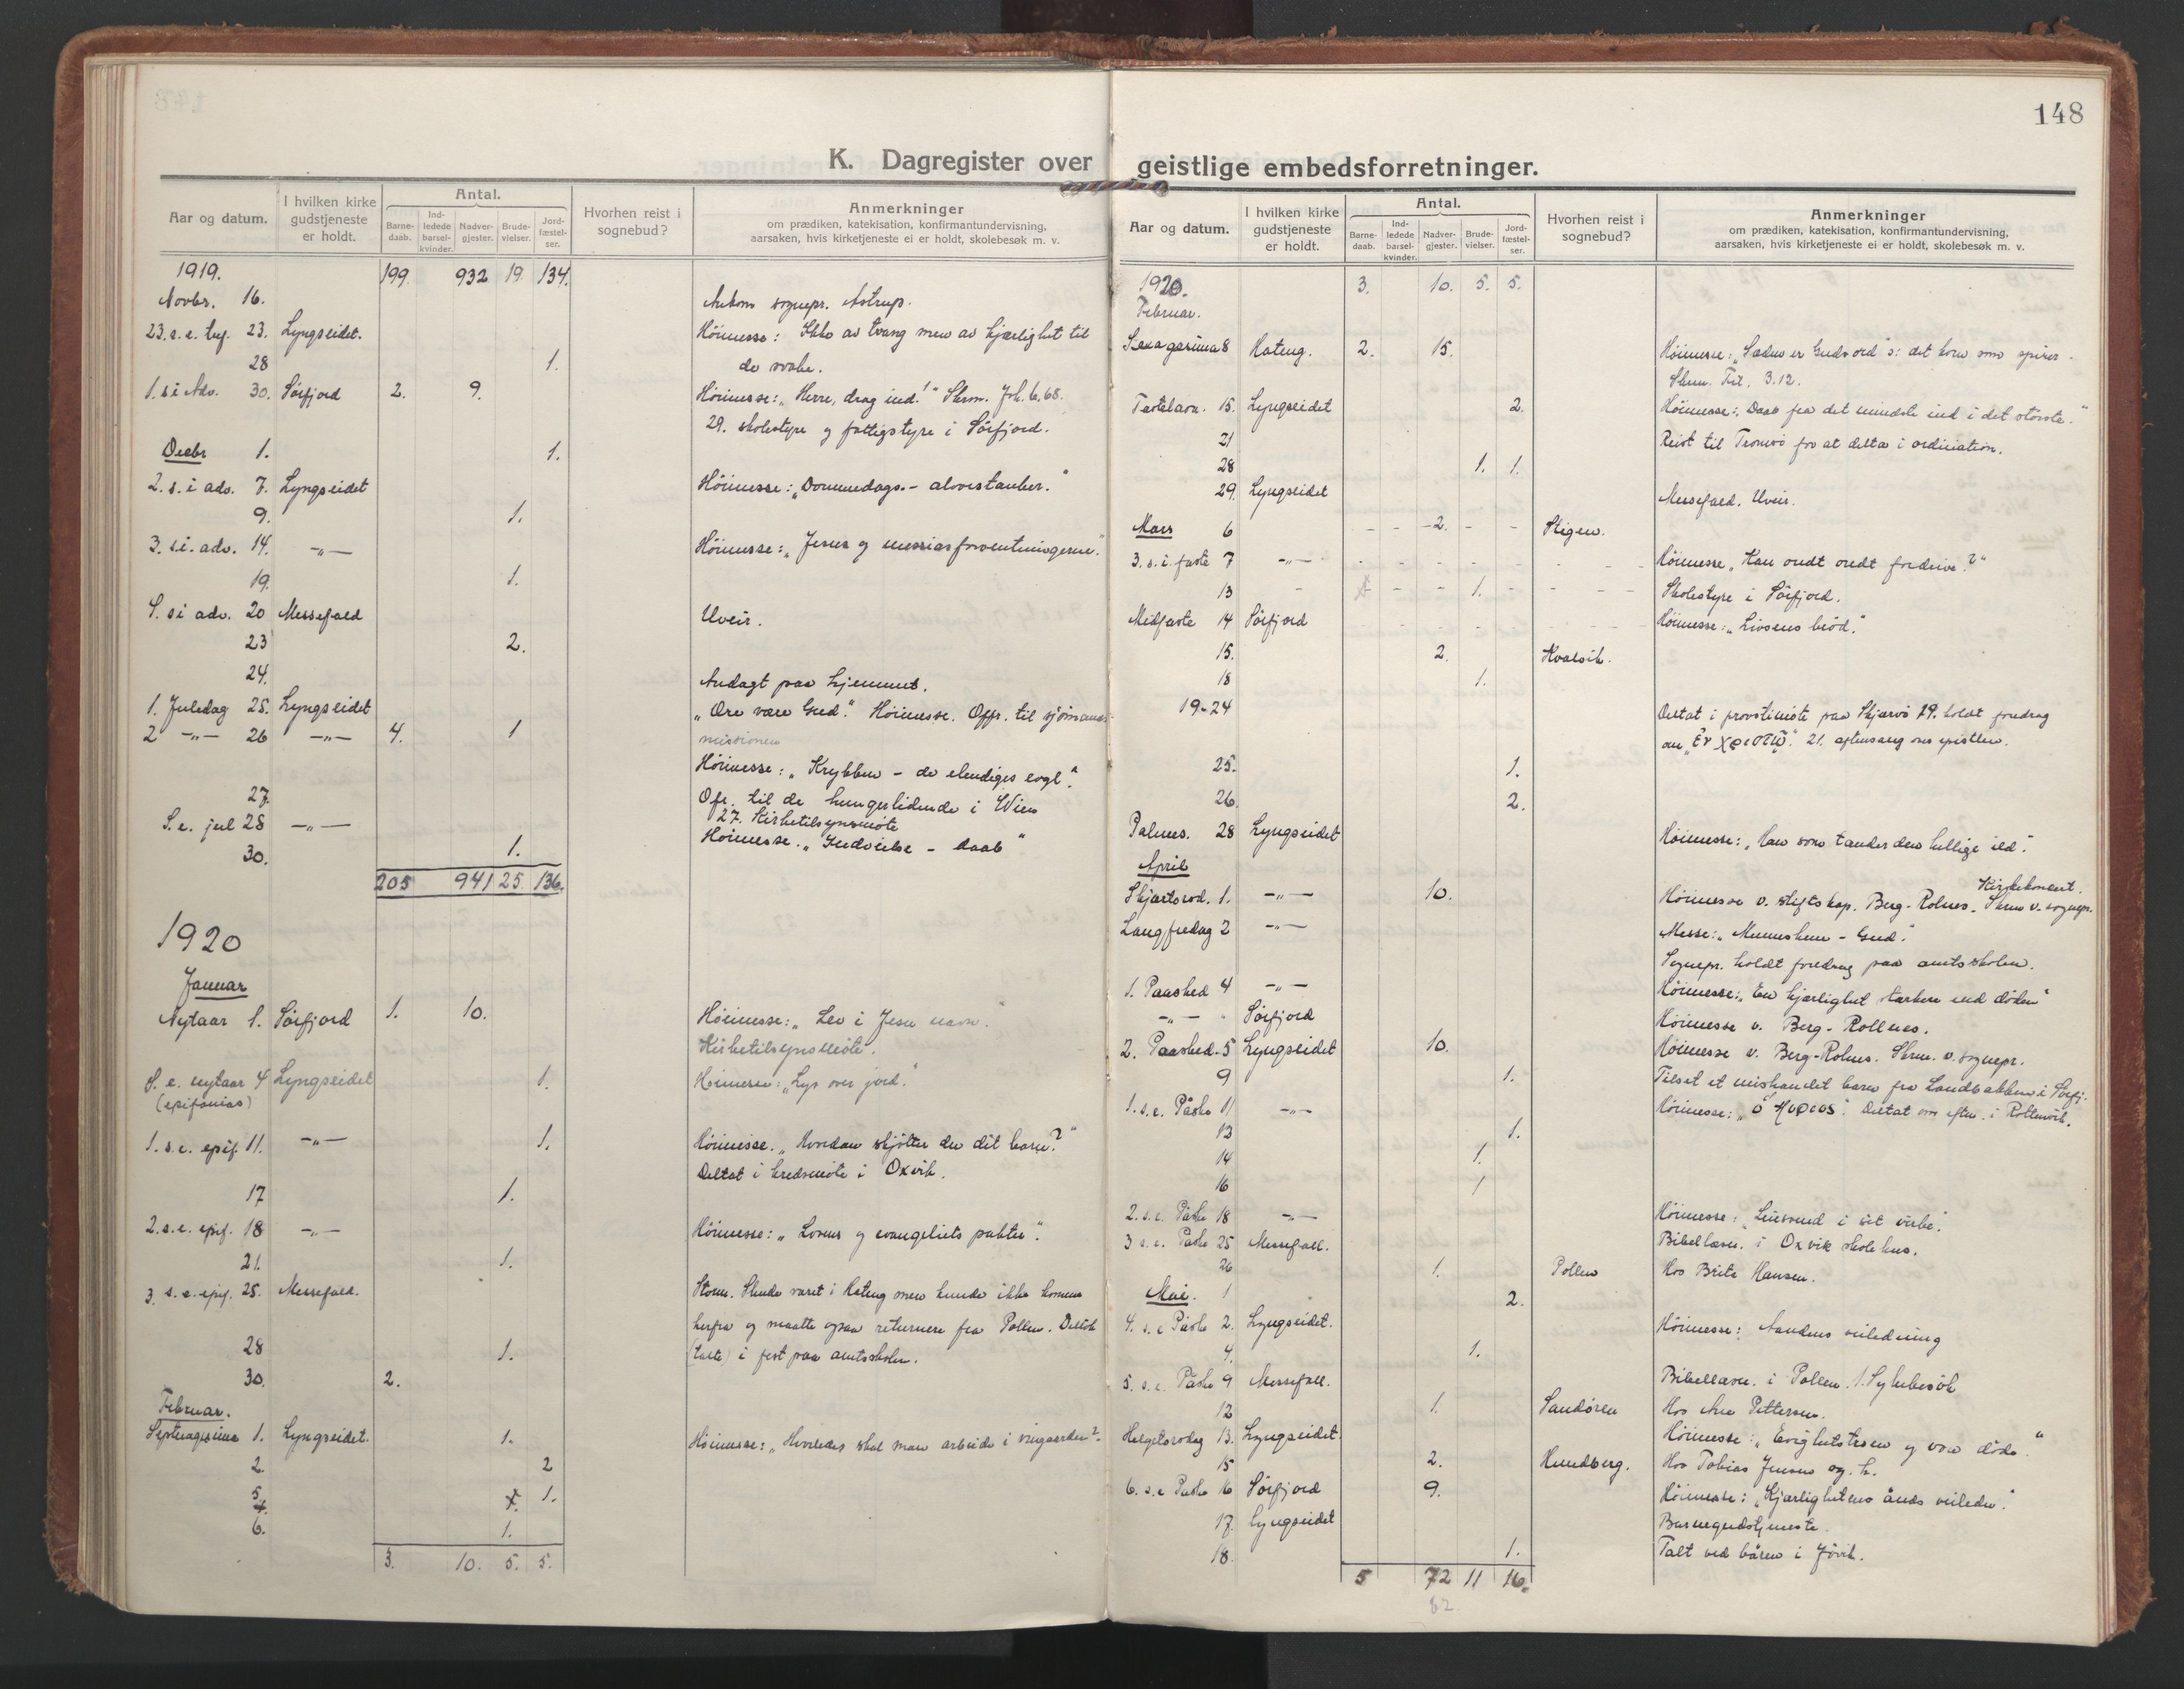 148
K. Dagregister over geistlige embedsforretninger.
Aar og datum. I hvilken kirke gudstjeneste er holdt. Antal. Barne-daab. Ind-ledede barsel-kvinder. Nadver-gjester. Brude-vielser. Jord-fæstel-ser. Hvorhen reist i sognebud? Anmerkninger om prædiken, katekisation, konfirmantundervisning, aarsaken, hvis kirketjeneste ei er holdt, skolebesøk m. v.
1919. 199. 932 19 134.
Novbr. 16. Ankom sognepr. Astrup.
23. s. e. tref. 23. Lyngseidet. Höimesse: Ikke av tvang men av kjærlighet til
28 1. de svake.
1. s. i Adv. 30. Sörfjord 2. 9. Höimesse: „Herre, drag ind!" Skrm. Joh. 6,68.
29. skolestyre og fattigstyre i Sörfjord.
Decbr 1. 1.
2. s. i adv. 7. Lyngseidet Höimesse: „Dommedags-
9. 1.
3. s. i. adv. 14. -„- Höimesse: „Jesus og messiasforventningerne."
19. 1.
4. s i adv. 20 Messefald Uveir.
23 2.
24. Andagt paa hjemmet.
1. Juledag 25. Lyngseidet „Ære være Gud". Höimesse. Offr. til sjömands-
2 -„- 26 -„- 4. 1 missionen
Höimesse: „Krybben - de elendiges
27. Ofr. til de hungerslidende i Wien
27. Kirketilsynsmöte
S. e. jul 28 -„- Höimesse. „Indvielse - daab"
30. 1.
205 941 25 136.
1920
Januar
Nytaar 1. Sörfjord 1. 10. Höimesse: „Lev i Jesu navn.
Kirketilsynsmöte.
S. e. nytaar 4 Lyngseidet 1. Höimesse: „Lys over jord."
(epifanias)
1. s. e. epif. 11. -„- 1. Höimesse. „Hvordan skjötter du dit barn?"
Deltat i kredsmöte i Oxvik.
17 1.
2. s. e. epif. 18 -„- Höimesse: „Lovens og evangeliets pakter".
21. 1.
3. s. e. epif. 25. Messefald. Storm. Skulde været i Kateng men kunde ikke komme
herfra og maatte ogsaa returnere fra Pollen. Deltok
28 1. (talte) i fest paa amtsskolen.
30. 2.
Februar.
Septuagesima 1. Lyngseidet. 1. Höimesse: „Hvorledes skal man arbeide i vingaarden?"
2. 2
5. 1.
6. 1.
3. 10. 5. 5.
Aar og datum. I hvilken kirke gudstjeneste er holdt. Antal. Barne-daab. Ind-ledede barsel-kvinder. Nadver-gjester. Brude-vielser. Jord-fæstel-ser. Hvorhen reist i sognebud? Anmerkninger om prædiken, katekisation, konfirmantundervisning, aarsaken, hvis kirketjeneste ei er holdt, skolebesøk m. v.
1920. 3. 10. 5. 5.
Februar.
Sexagesima 8 Kateng. 2. 15. Höimesse: „Sæden er Guds ord" ɔ: det korn som spirer.
Skrm. Tit. 3.12.
Fastelavn. 15. Lyngseidet 2. Höimesse: „Daab fra det mindste ind i det største."
21 Reist til Tromsö for at delta i ordination.
28 1. 1.
29. Lyngseidet Messefald. Uveir.
Mars 6 2. Stigen.
3. s. i. faste 7 -„- Höimesse „Kan ondt ondt fordrive?"
13 1. Skolestyre i Sörfjord.
Midfaste 14 Sörfjord Höimesse: „Livsens bröd."
15. 2. Kvalvik.
18 1.
19-24 Deltat i provstimöte paa Skjærvö 19. holdt foredrag
om „Ἐν Χριστῷ". 21. aftensang over epistlen.
25. 1.
26. 2.
Palmes. 28 Lyngseidet Höimesse: „Han som tænder den hellige ild".
April Kirkekonsert.
Skjærtorsd. 1. -„- 10. Höimesse v. stiftskap. Berg-Rolnes. Skrm v. sognepr.
Langfredag 2 -„- Messe: „Mennesken - Gud".
Sognepr. holdt foredrag paa amtsskolen.
1. Paasked 4 -„- Höimesse: „En kjærlighet sterkere end döden"
-„- Sörfjord Höimesse v. Berg-Rollnes.
2. Paasked. 5 Lyngseidet 10. Höimesse v. Berg-Rolnes. Skrm. v. sognepr.
9 1. Tilset et mishandlet barn fra Sandbakken i Sörfj.
1. s. e. Påske 11 -„- Höimesse: Deltat om eftm. i Rottenvik.
13 1.
14 1.
16 1
2. s. e. Påske 18 -„- Höimesse:
3 s. e. Påske 25 Messefall. Bibellæsn. i Oxvik skolehus.
26 1. Pollen Hos Brita Hansen.
Mai. 1 2.
4. s. e Påske 2. Lyngseidet. Höimesse: Aandens veiledning
4. 1.
5. s. e. Påske 9 Messefall. Bibellæsn. i Pollen. 1. Sykebesök
12 1. Sandören Hos Ane Pettersen.
Helgetorsdag 13. Lyngseidet. Höimesse: „Evighetstroen og vore döde"
15 2. Hundberg. Hos Tobias Jensen og h.
6. s. e Påske 16 Sörfjord 9. Höimesse: „Kjærlighetens ånds veileder."
17. Lyngseidet Barnegudstjeneste.
18. 1. Talt ved båren i Jövik.
5 72 11 16.
62